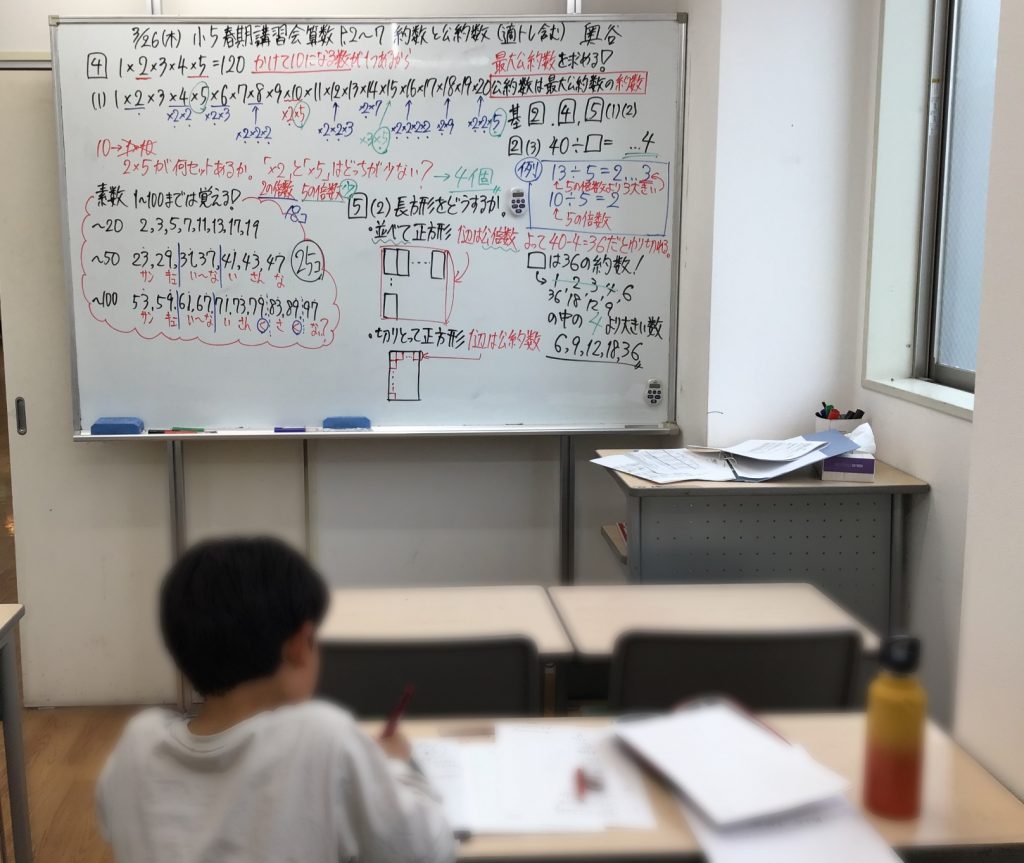 3/26(木) 小5春期講習会算数 P2〜7 約数と公約数 (適トレ含む) 奥谷
4 1×2×3×4×5=120 かけて10になる数が1つあるから
(1) 1×2×3×4×5×6×7×8×9×10×11×12×13×14×15×16×17×18×19×20
×2×2 ×2×3 ×2×5 ×2×7
×2×2×2 ×2×2×3 ×3×5 ×2×2×2×2 ×2×9 ×2×2×5
10→
2×5が何セットあるか。「×2」と「×5」はどっちが少ない? → 4個
2の倍数 5の倍数
素数 1~100までは覚える!
~20 2,3,5,7,11,13,17,19
8コ
~50 23,29,31,37,41,43,47
25コ
~100 53,59,61,67,71,73,79,83,89,97
最大公約数を求める!
公約数は最大公約数の約数
基 2, 4, 5 (1)(2)
2 (3) 40÷□= …4
例) 13÷5=2…3
5の倍数より3大きい
10÷5=2
5の倍数
よって40-4=36だとわり切れる。
□は36の約数!
1 2 3 4 6
36 18 12 9
の中の4より大きい数
6,9,12,18,36
5 (2) 長方形をどうするか。
・並べて正方形 1辺は公倍数
・切りとって正方形 1辺は公約数